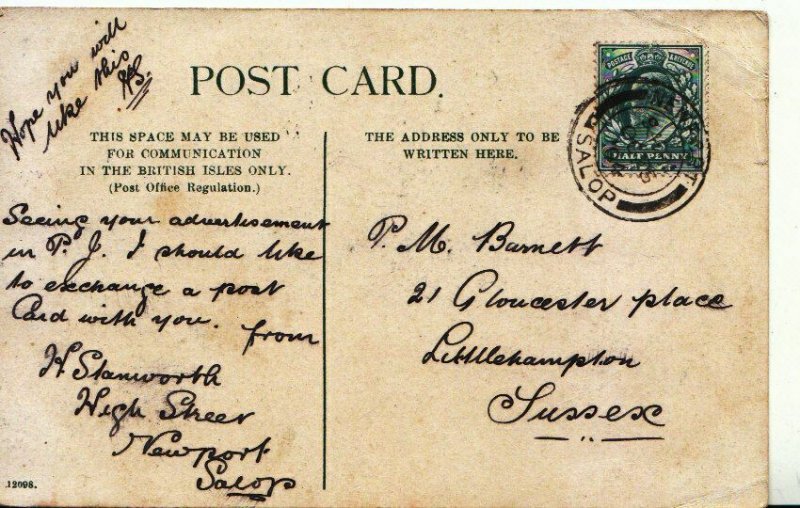 Hope you will
like this
HS.
POST CARD.
THIS SPACE MAY BE USED
FOR COMMUNICATION
IN THE BRITISH ISLES ONLY.
(Post Office Regulation.)
THE ADDRESS ONLY TO BE
WRITTEN HERE.
POSTAGE & REVENUE
HALF PENNY
SALOP
Seeing your advertisement
in P. J. I should like
to exchange a post
Card with you. from
H Stanworth
High Street
Newport
Salop
P. M. Barnett
21 Gloucester place
Littlehampton
Sussex
12098.